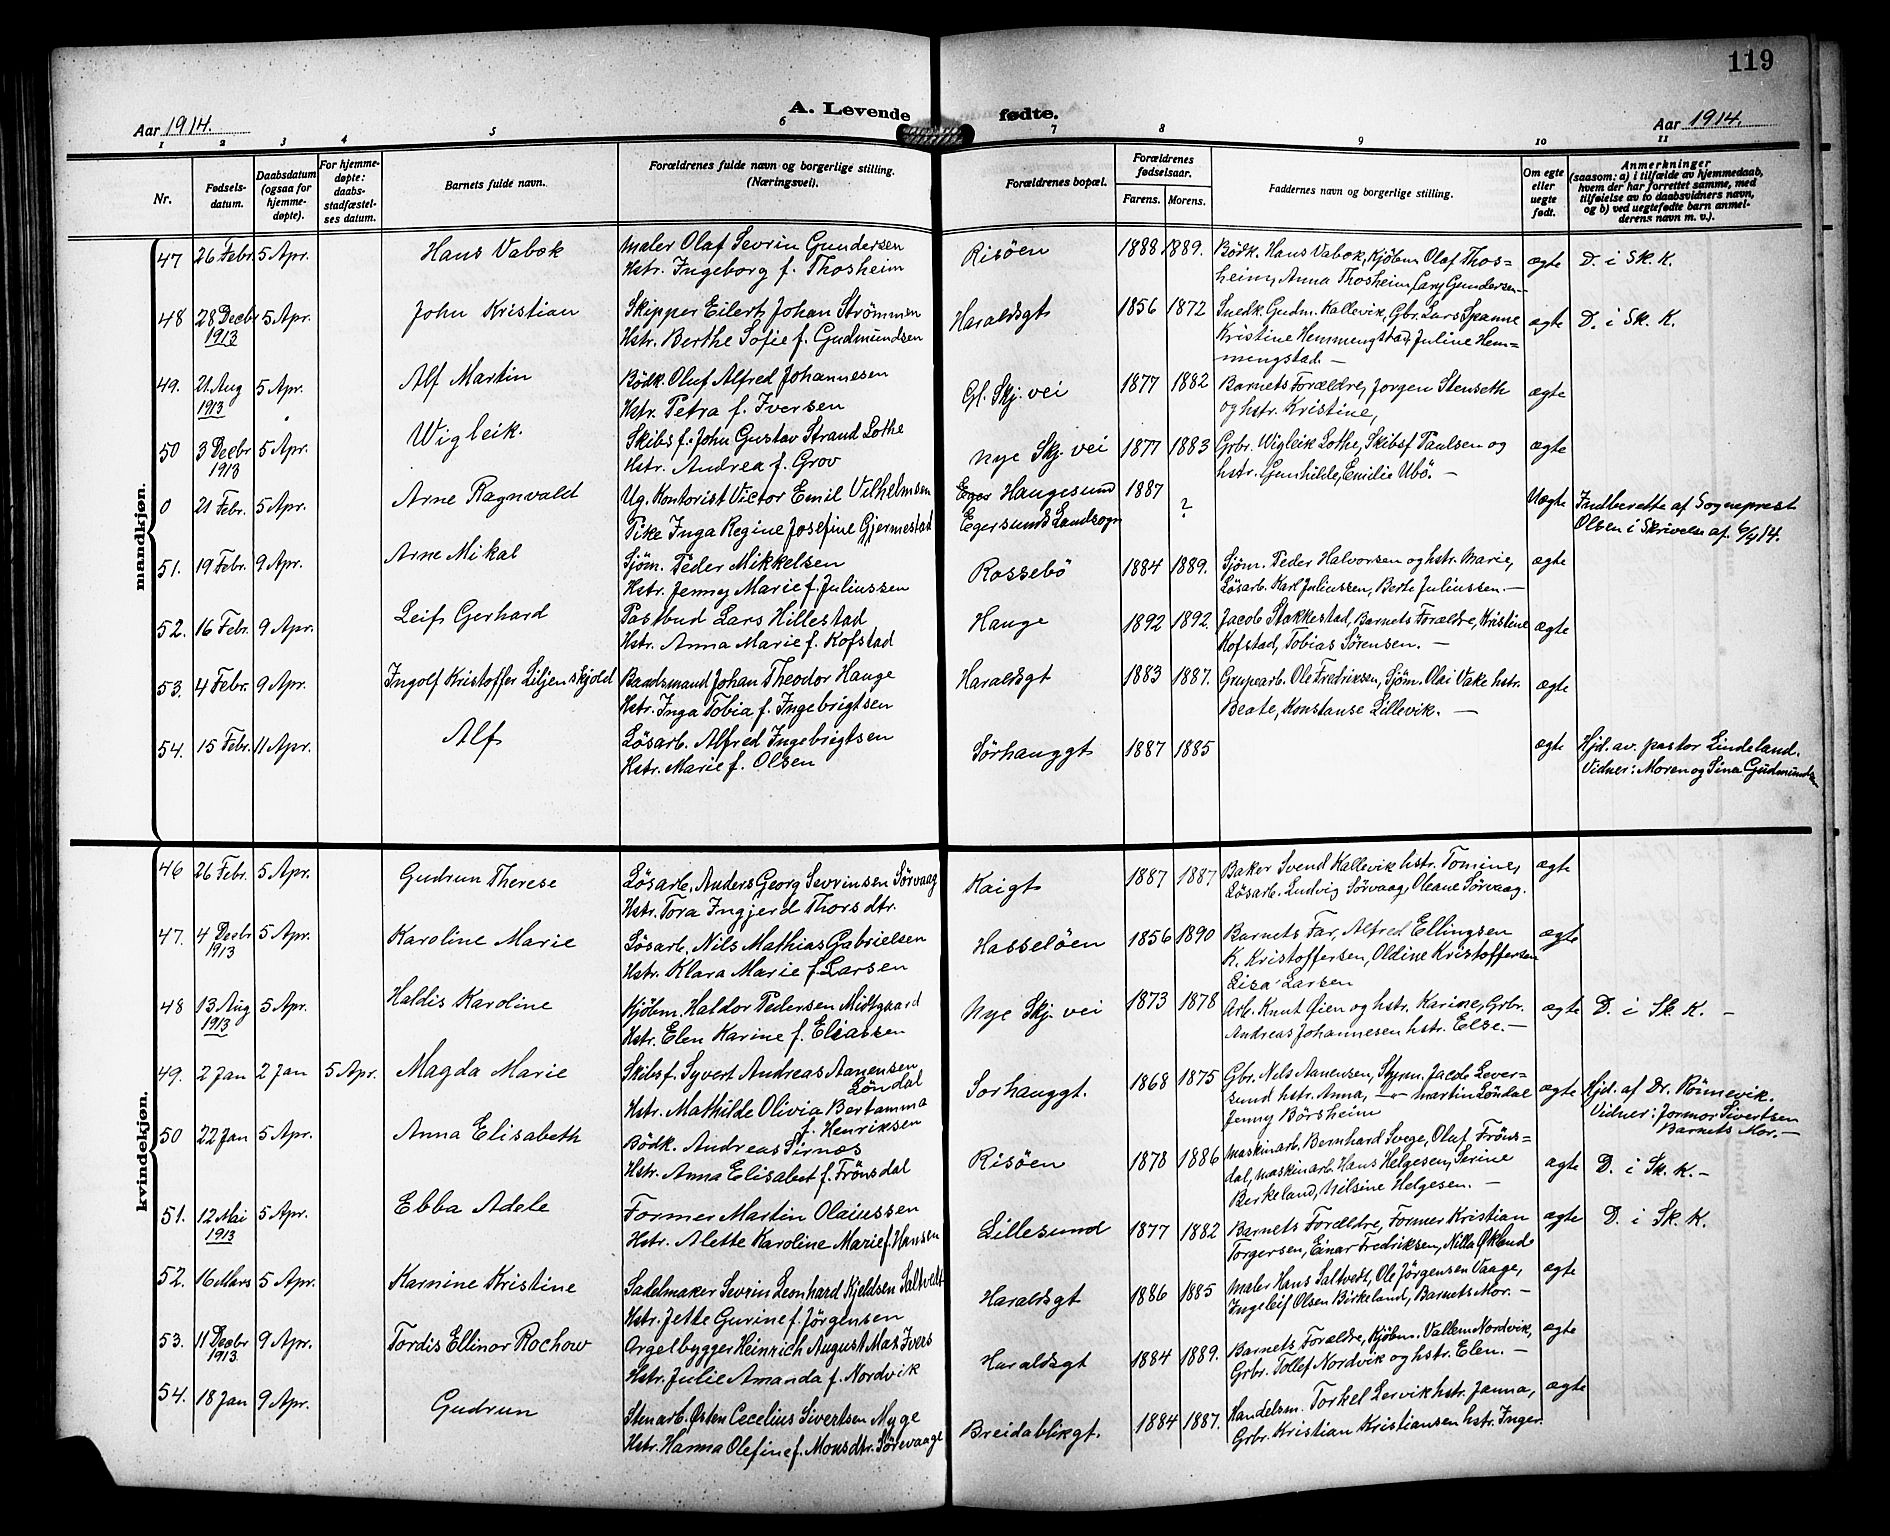 119
A. Levende fødte.
Aar 1914. Aar 1914.
1 2 3 4 5 6 7 8 9 10 11
Nr. Fødsels-datum. Daabsdatum (ogsaa for hjemme-døpte). For hjemme-døpte: daabs-stadfæstel-ses datum. Barnets fulde navn. Forældrenes fulde navn og borgerlige stilling. (Næringsvei). Forældrenes bopæl. Forældrenes fødselsaar. Farens. Morens. Faddernes navn og borgerlige stilling. Om egte eller uegte født. Anmerkninger (saasom: a) i tilfælde av hjemmedaab, hvem der har forrettet samme, med tilføielse av to daabsvidners navn, og b) ved uegtefødte barn anmel-derens navn m. v.).
mandkjøn.
47 26 Febr. 5 Apr. Hans Vabok Maler Olaf Sevrin Gundersen Risöen 1888. 1889. Bödk. Hans Vabok, Kjöbm Olaf Thos= ægte D. i Sk. K.
Hstr. Ingeborg f. Thosheim heim, Anna Thosheim, Lars Gundersen.—
48 28 Decbr 1913 5 Apr. John Kristian Skipper Eilert Johan Strömmen Haraldsgt 1856 1872 Snedk. Gudm. Kallevik, Gbr. Lars Spanne ægte D. i Sk. K.
Hstr. Berthe Sofie f. Gudmundsen Kristine Hemmengstad, Juline Hem=
mengstad.—
49. 21 Aug 1913 5 Apr. Alf Martin Bödk. Oluf Alfred Johannesen Gl. Skj. vei 1877 1882 Barnets Forældre, Jorgen Stenseth ægte
Hstr. Petra f. Iversen og hstr. Kristine,
50 3 Decbr 1913 5 Apr. Wigleik. Skibsf. John Gustav Strand Lothe Nye Skj. vei 1877 1883 Grbr. Wigleik Lothe, Skibsf Paulsen og ægte
Hstr. Andrea f. Grov hstr. Gunhilde, Emilie Ubö.—
0 21 Febr. 5 Apr. Arne Ragnvald Ug. Kontorist Victor Emil Vilhelmsen Haugesund 1887 ? Uægte Indberette af Sogneprest
Pike Inga Regine Josefine Gjermestad Egersunds Landsogn Olsen i Skrivelse af 6/4 14.
51. 19 Febr. 9 Apr. Arne Mikal Sjöm. Peder Mikkelsen Rossebö 1884 1889. Sjöm. Peder Halvorsen og hstr. Marie, ægte
Hstr. Jenny Marie f. Juliussen Lösarb. Karl Juliussen, Berte Juliussen.—
52. 16 Febr. 9 Apr. Leif Gerhard Postbud Lars Hillestad Hauge 1892 1892. Jacob Stakkestad, Barnets Forældre, Kristine ægte
Hstr. Anna Marie f. Kofstad Hofstad, Tobias Sörensen.—
53. 4 Febr. 9 Apr. Ingolf Kristoffer Liljenskjold Baadsmand Johan Theodor Hauge Haraldsgt 1883 1887. Grupearb. Ole Fredriksen, Sjöm. Olai Vake hstr. ægte
Hstr. Inga Tobia f. Ingebrigtsen Beate, Konstanse Lillevik.—
54. 15 Febr. 11 Apr. Alf Lösarb. Alfred Ingebrigtsen Sörhauggt 1887 1885 ægte Hjd. av. pastor Lindeland.
Hstr. Marie f. Olsen Vidner: Moren og Sina Gudmundsen
kvindekjøn.
46 26 Febr. 5 Apr. Gudrun Therese Lösarb. Anders Georg Sevrinsen Sörvaag Kaigt 1887 1887 Baker Svend Kallevik hstr. Tomine, ægte
Hstr. Tora Ingjerd Thorsdtr. Lösarb. Ludvig Sörvaag, Oleane Sörvaag.
47. 4 Decbr 1913 5 Apr. Karoline Marie Lösarb. Nils Mathias Gabrielsen Hasselöen 1856 1890 Barnets Far, Alfred Ellingsen ægte
Hstr. Klara Marie f. Larsen K. Kristoffersen, Oldine Kristoffersen
Lisa Larsen
48 13 Aug 1913 5 Apr. Haldis Karoline Kjöbm. Haldor Pedersen Midtgaard Nye Skj. vei 1873 1878 Arb. Knut Øien og hstr. Karine, Grbr. ægte D. i Sk. K. —
Hstr. Elen Karine f. Eliassen Andreas Johannesen hstr. Else.—
49. 2 Jan 2 Jan 5 Apr. Magda Marie Skibsf. Syvert Andreas Aanensen Löndal Sorhauggt. 1868 1875 Gbr. Nils Aanensen, Styrm. Jacob Lever- ægte Hjd. af Dr. Römevik.
Hstr. Mathilde Olivia Bertomma f. Henriksen sund hstr. Anna, —"— Martin Löndal Vidner: Jormor Sivertsen
Jenny Börsheim Barnets Mor.—
50 22 Jan 5 Apr. Anna Elisabeth Bödk. Andreas Sirnes Risöen 1878 1886 Maskinarb. Bernhard Svege, Oluf Fröns= ægte D. i Sk. K.—
Hstr. Anna Elisabet f. Frönsdal dal, Maskinarb. Hans Helgesen, Serine
Birkeland, Nilsine Helgesen.—
51. 12 Mai 1913 5 Apr. Ebba Adele Former Martin Olaiussen Lillesund 1877 1882 Barnets Forældre, Former Kristian ægte D. i Sk. K.
Hstr. Alette Karoline Marie f. Hansen Torgersen, Einar Fredriksen, Nilla Økland
52. 16 Mars 5 Apr. Karnine Kristine Sadelmaker Sevrin Leonhard Kjeldsen Saltvedt Haraldsgt 1886 1885 Maler Hans Saltvedt, Ole Jörgensen Vaage, ægte
Hstr. Jette Gurine f. Jörgensen Ingeleif Olsen Birkeland, Barnets Mor.—
53. 11 Decbr 1913 9 Apr. Tordis Ellinor Rochow Orgelbygger Heinrich August Max Ivers Haraldsgt 1884 1889. Barnets Forældre, Kjöbm. Vallem Nordvik, ægte
Hstr. Julie Amanda f. Nordvik Grbr. Tollef Nordvik og hstr. Elen.—
54. 18 Jan 9 Apr. Gudrun Stenarb. Østen Cecelius Sivertsen Myge Breidablikgt. 1884 1887. Handelsm. Torkel Lervik hstr. Janna, ægte
Hstr. Hanna Olefine f. Monsdtr. Sörevaage Grbr. Kristian Kristiansen hstr. Inger.